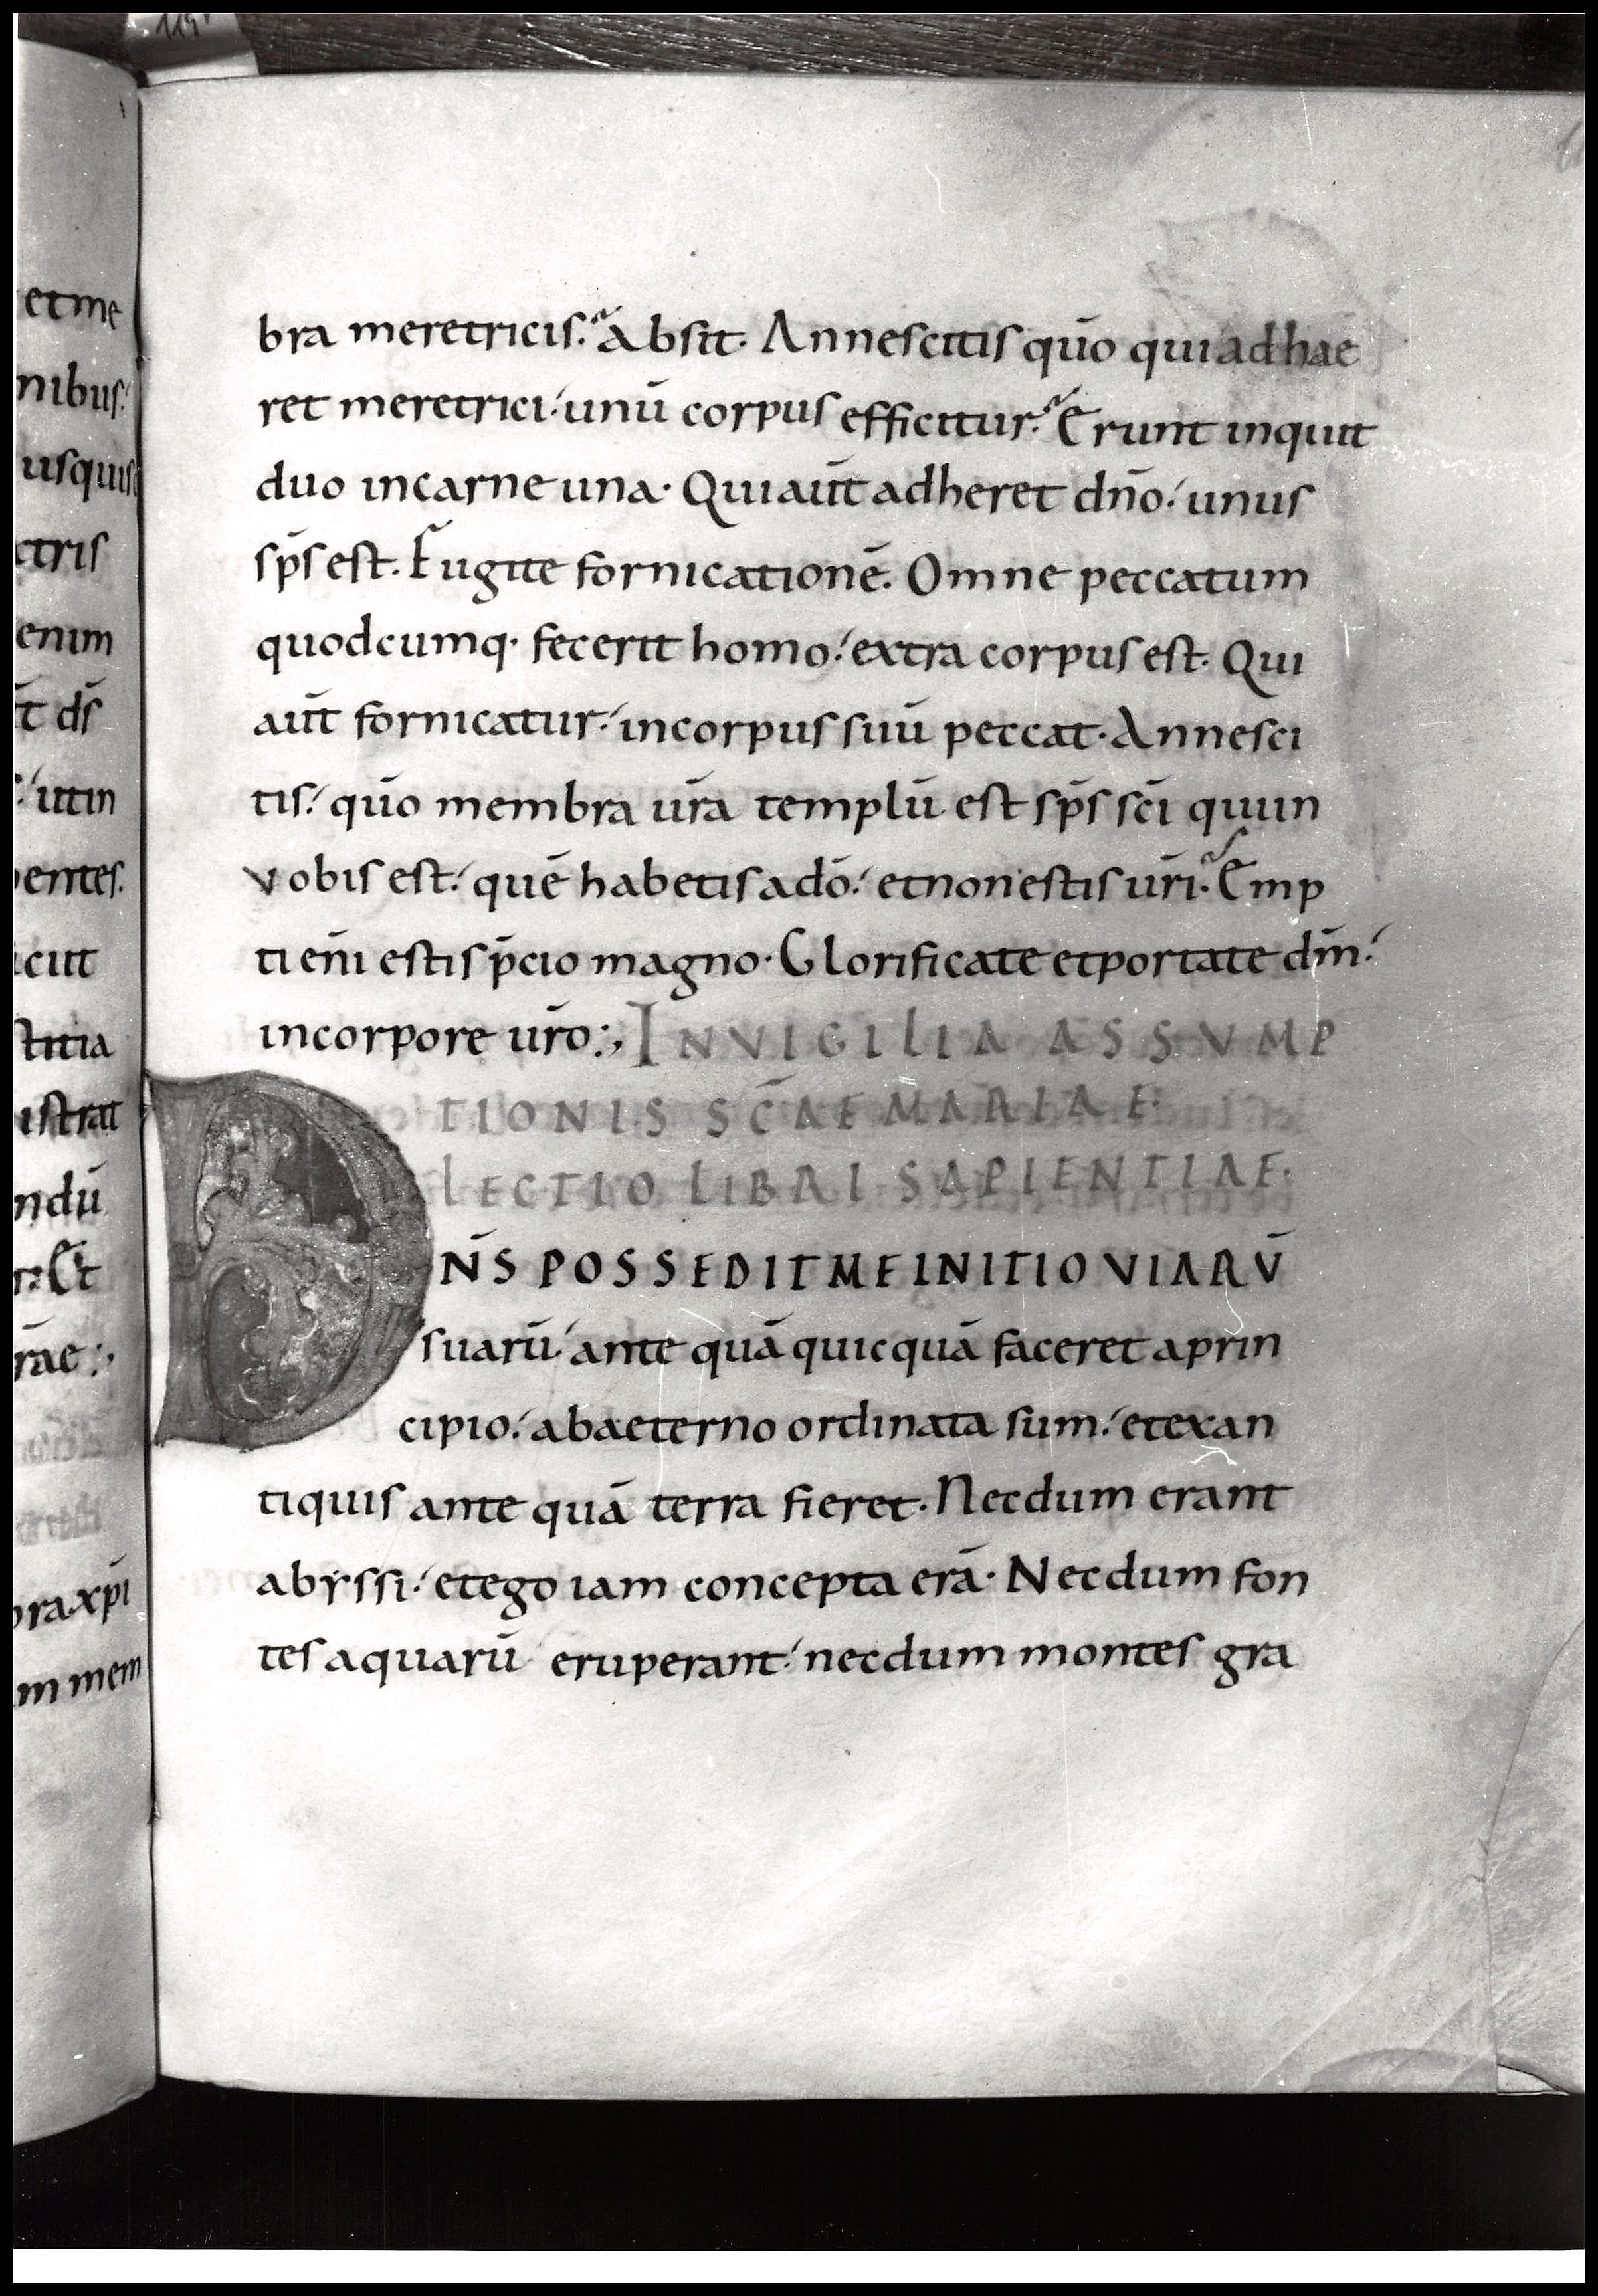 etme
nibus:
usquis
ctris
enim
t ds̄
utin
entes.
icut
stitia
istrat
ndū
Et
rāe:,
bra xp̄i
m mem
bra meretricis. Absit. Annescitis quō qui adhae
ret meretrici unū corpus efficitur. Erunt inquit
duo incarne una. Qui aūt adheret dn̄o unus
sp̄s est. Fugite fornicationē. Omne peccatum
quodcumq· fecerit homo extra corpus est. Qui
aūt fornicatur incorpus suū peccat. Annesci
tis quō membra ur̄a templū est sp̄s sc̄i quiin
vobis est quē habetis adō et non estis ur̄i. Emp
ti enī estis p̄cio magno. Glorificate et portate dm̄
incorpore ur̄o:, IN VIGILIA ASSVMP
TIONIS SC̄AE MARIAE.
LECTIO LIBRI SAPIENTIAE.
DN̄S POSSEDIT ME INITIO VIARV̄
suarū ante quā quicquā faceret aprin
cipio abaeterno ordinata sum et exan
tiquis ante quā terra fieret. Necdum erant
abyssi et ego iam concepta erā. Necdum fon
tes aquarū eruperant necdum montes gra